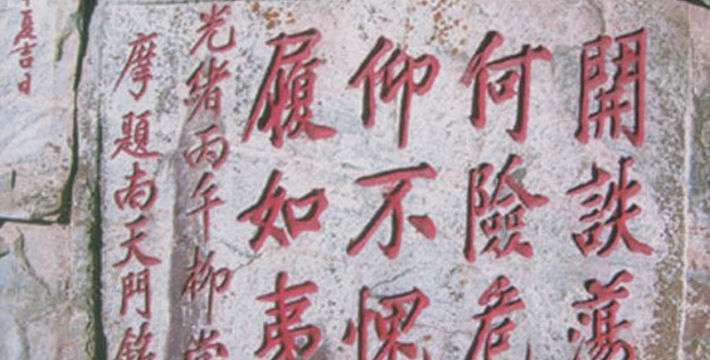 開誒蕩
何險危
仰不愧
履如夷
光緒丙午柳堂
摩題南天門銘
夏吉日